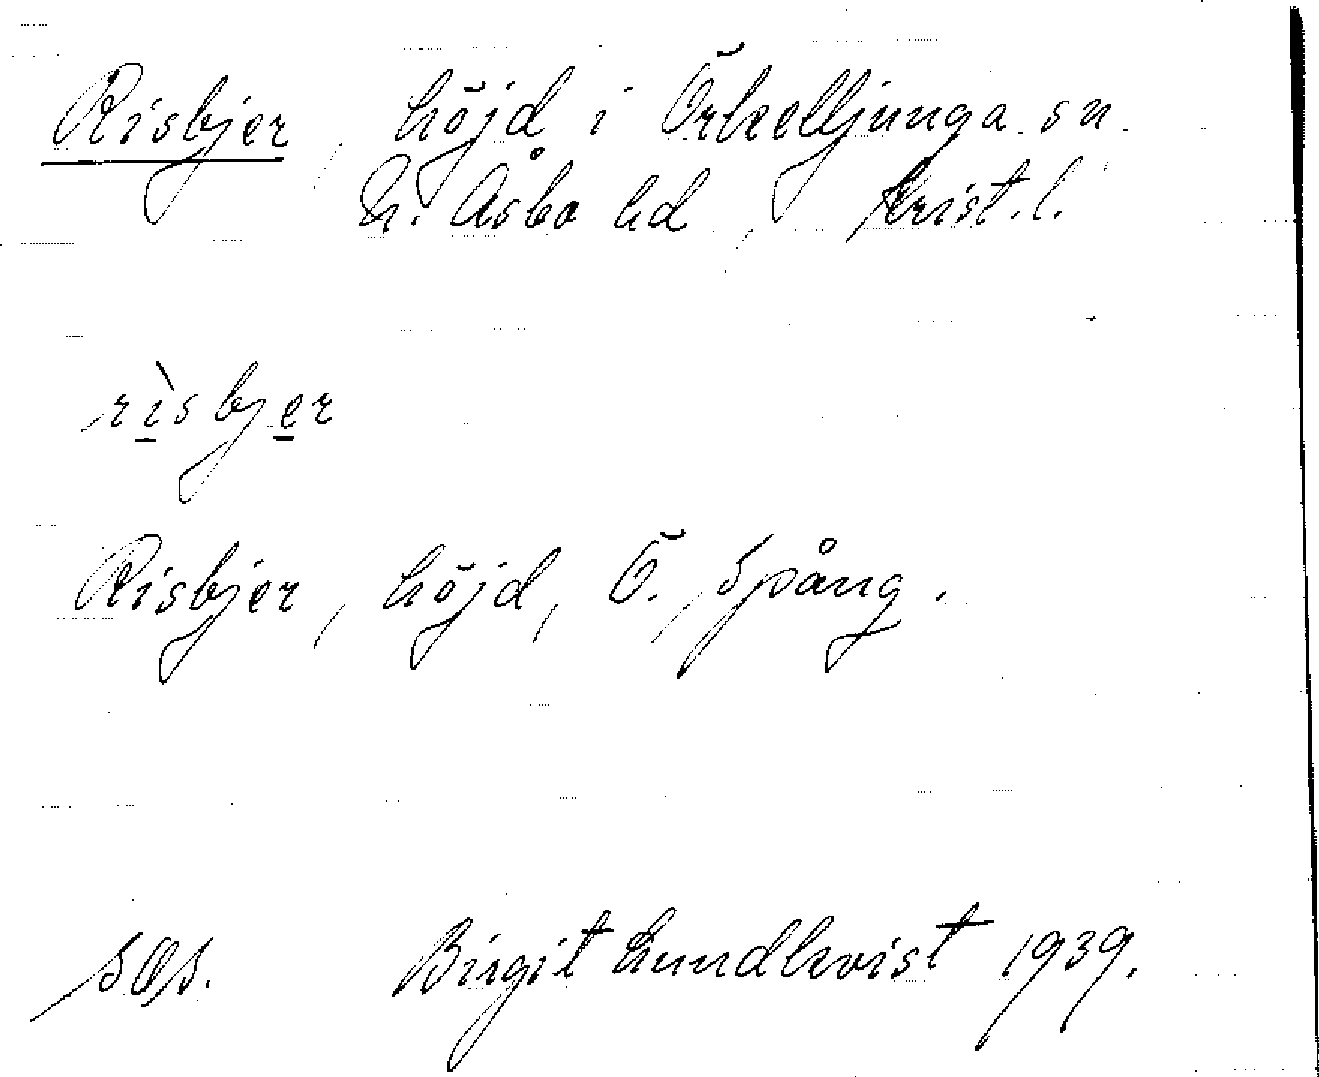 Risbjer, höjd i Örkelljunga sn.
N. Åsbo hd, Krist. l.
rìsbjer
Risbjer, höjd, Ö. Spång.
Birgit Lundkvist 1939.